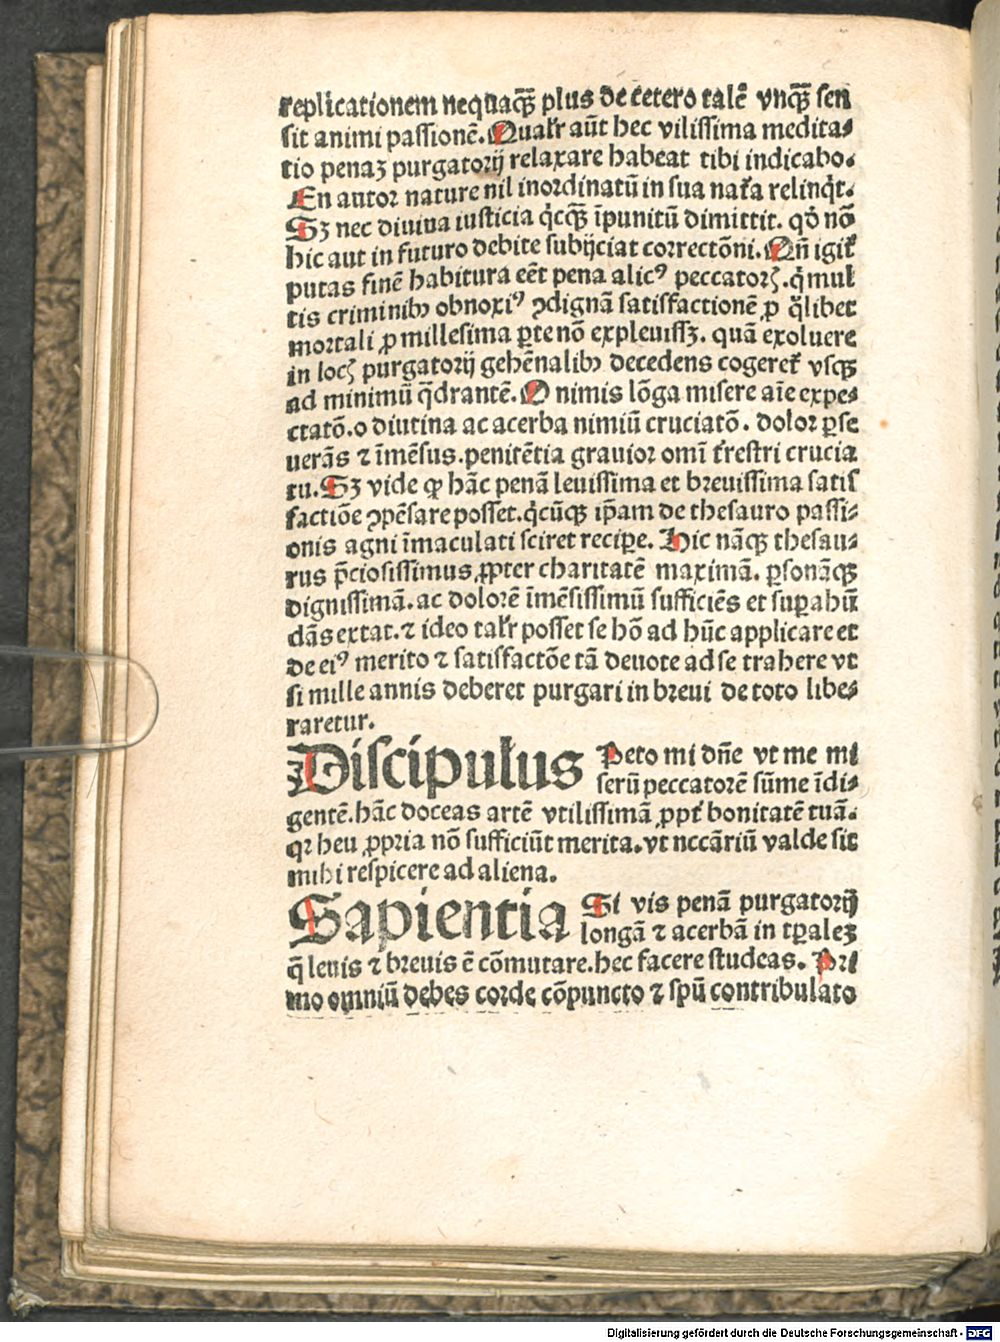 replicationem nequaqꝫ plus de cetero talē vnqꝫ sen
sit animi passionē. Qualr̄ aūt hec vilissima medita-
tio penaꝫ purgatorij relaxare habeat tibi indicabo.
En autor nature nil inordinatū in sua nat̄a relinqͥt.
Sꝫ nec diuina iusticia qͥcqꝫ īpunitū dimittit. qͦ nō
hic aut in futuro debite subijciat correctōni. Qn̄ igit̄
putas finē habitura eēt pena alicꝰ peccatorꝭ. qͥ mul
tis criminibꝫ obnoxiꝰ ꝯdignā satisfactionē ꝓ qͣlibet
mortali ꝓ millesima ꝑte nō expleuissꝫ. quā exoluere
in locꝭ purgatorij gehēnalibꝫ decedens cogeret̄ vsqꝫ
ad minimū qͣdrantē. O nimis lōga misere aīe expe-
ctatō. o diutina ac acerba nimiū cruciatō. dolor ꝑse
uerās ⁊ īmēsus. penitētia grauior omī t̄restri crucia
tu. Sꝫ vide ꝙ hāc penā leuissima et breuissima satis
factiōe ꝯpēsare posset. qͥcūqꝫ ip̄am de thesauro passi-
onis agni īmaculati sciret reciꝑe. Hic nāqꝫ thesau-
rus p̄ciosissimus, ꝓpter charitatē maximā. ꝑsonāqꝫ
dignissimā. ac dolorē īmēsissimū sufficiēs et suꝑahū
dās extat. ⁊ ideo talr̄ posset se hō ad hūc applicare et
de eiꝰ merito ⁊ satisfactōe tā deuote ad se trahere vt
si mille annis deberet purgari in breui de toto libe-
raretur.
Discipulus Peto mi dn̄e vt me mi
serū peccatorē sūme īdi-
gentē. hāc doceas artē vtilissimā ꝓpt̄ bonitatē tuā.
qꝛ heu ꝓpria nō sufficiūt merita. vt nccāriū valde sit
mihi respicere ad aliena.
Sapientia Si vis penā purgatorij
longā ⁊ acerbā in tꝑaleꝫ
q̄ leuis ⁊ breuis ē cōmutare. hec facere studeas. Pri
mo omniū debes corde cōpuncto ⁊ spū contribulato
Digitalisierung gefördert durch die Deutsche Forschungsgemeinschaft - DFG